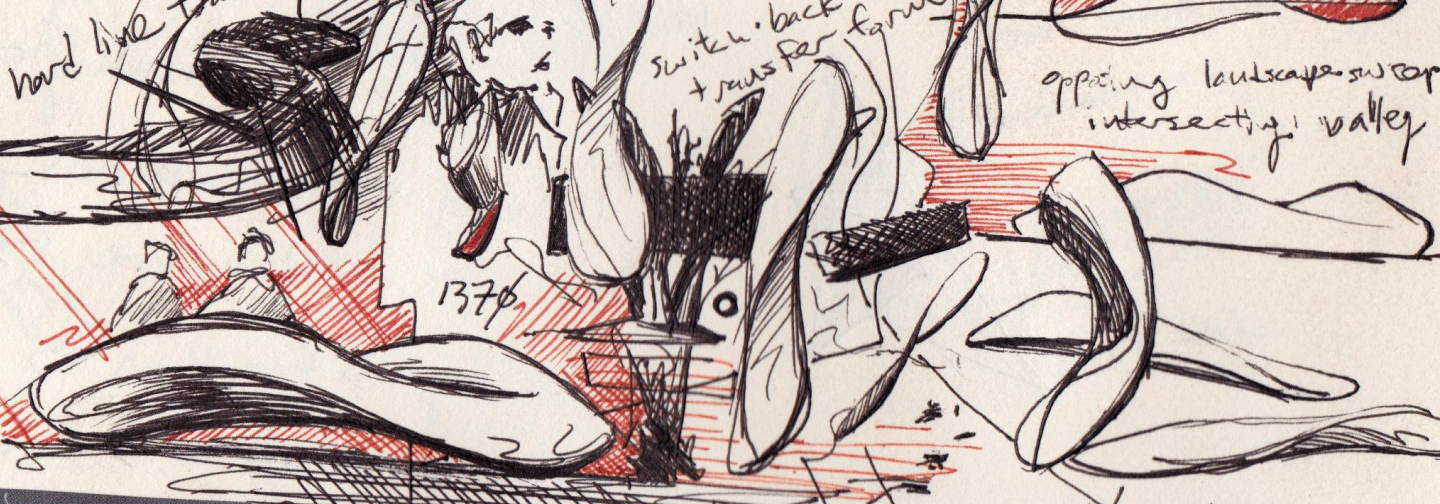 hard line
switch·back
transfer
opposing landscape
intersecting valley
1370